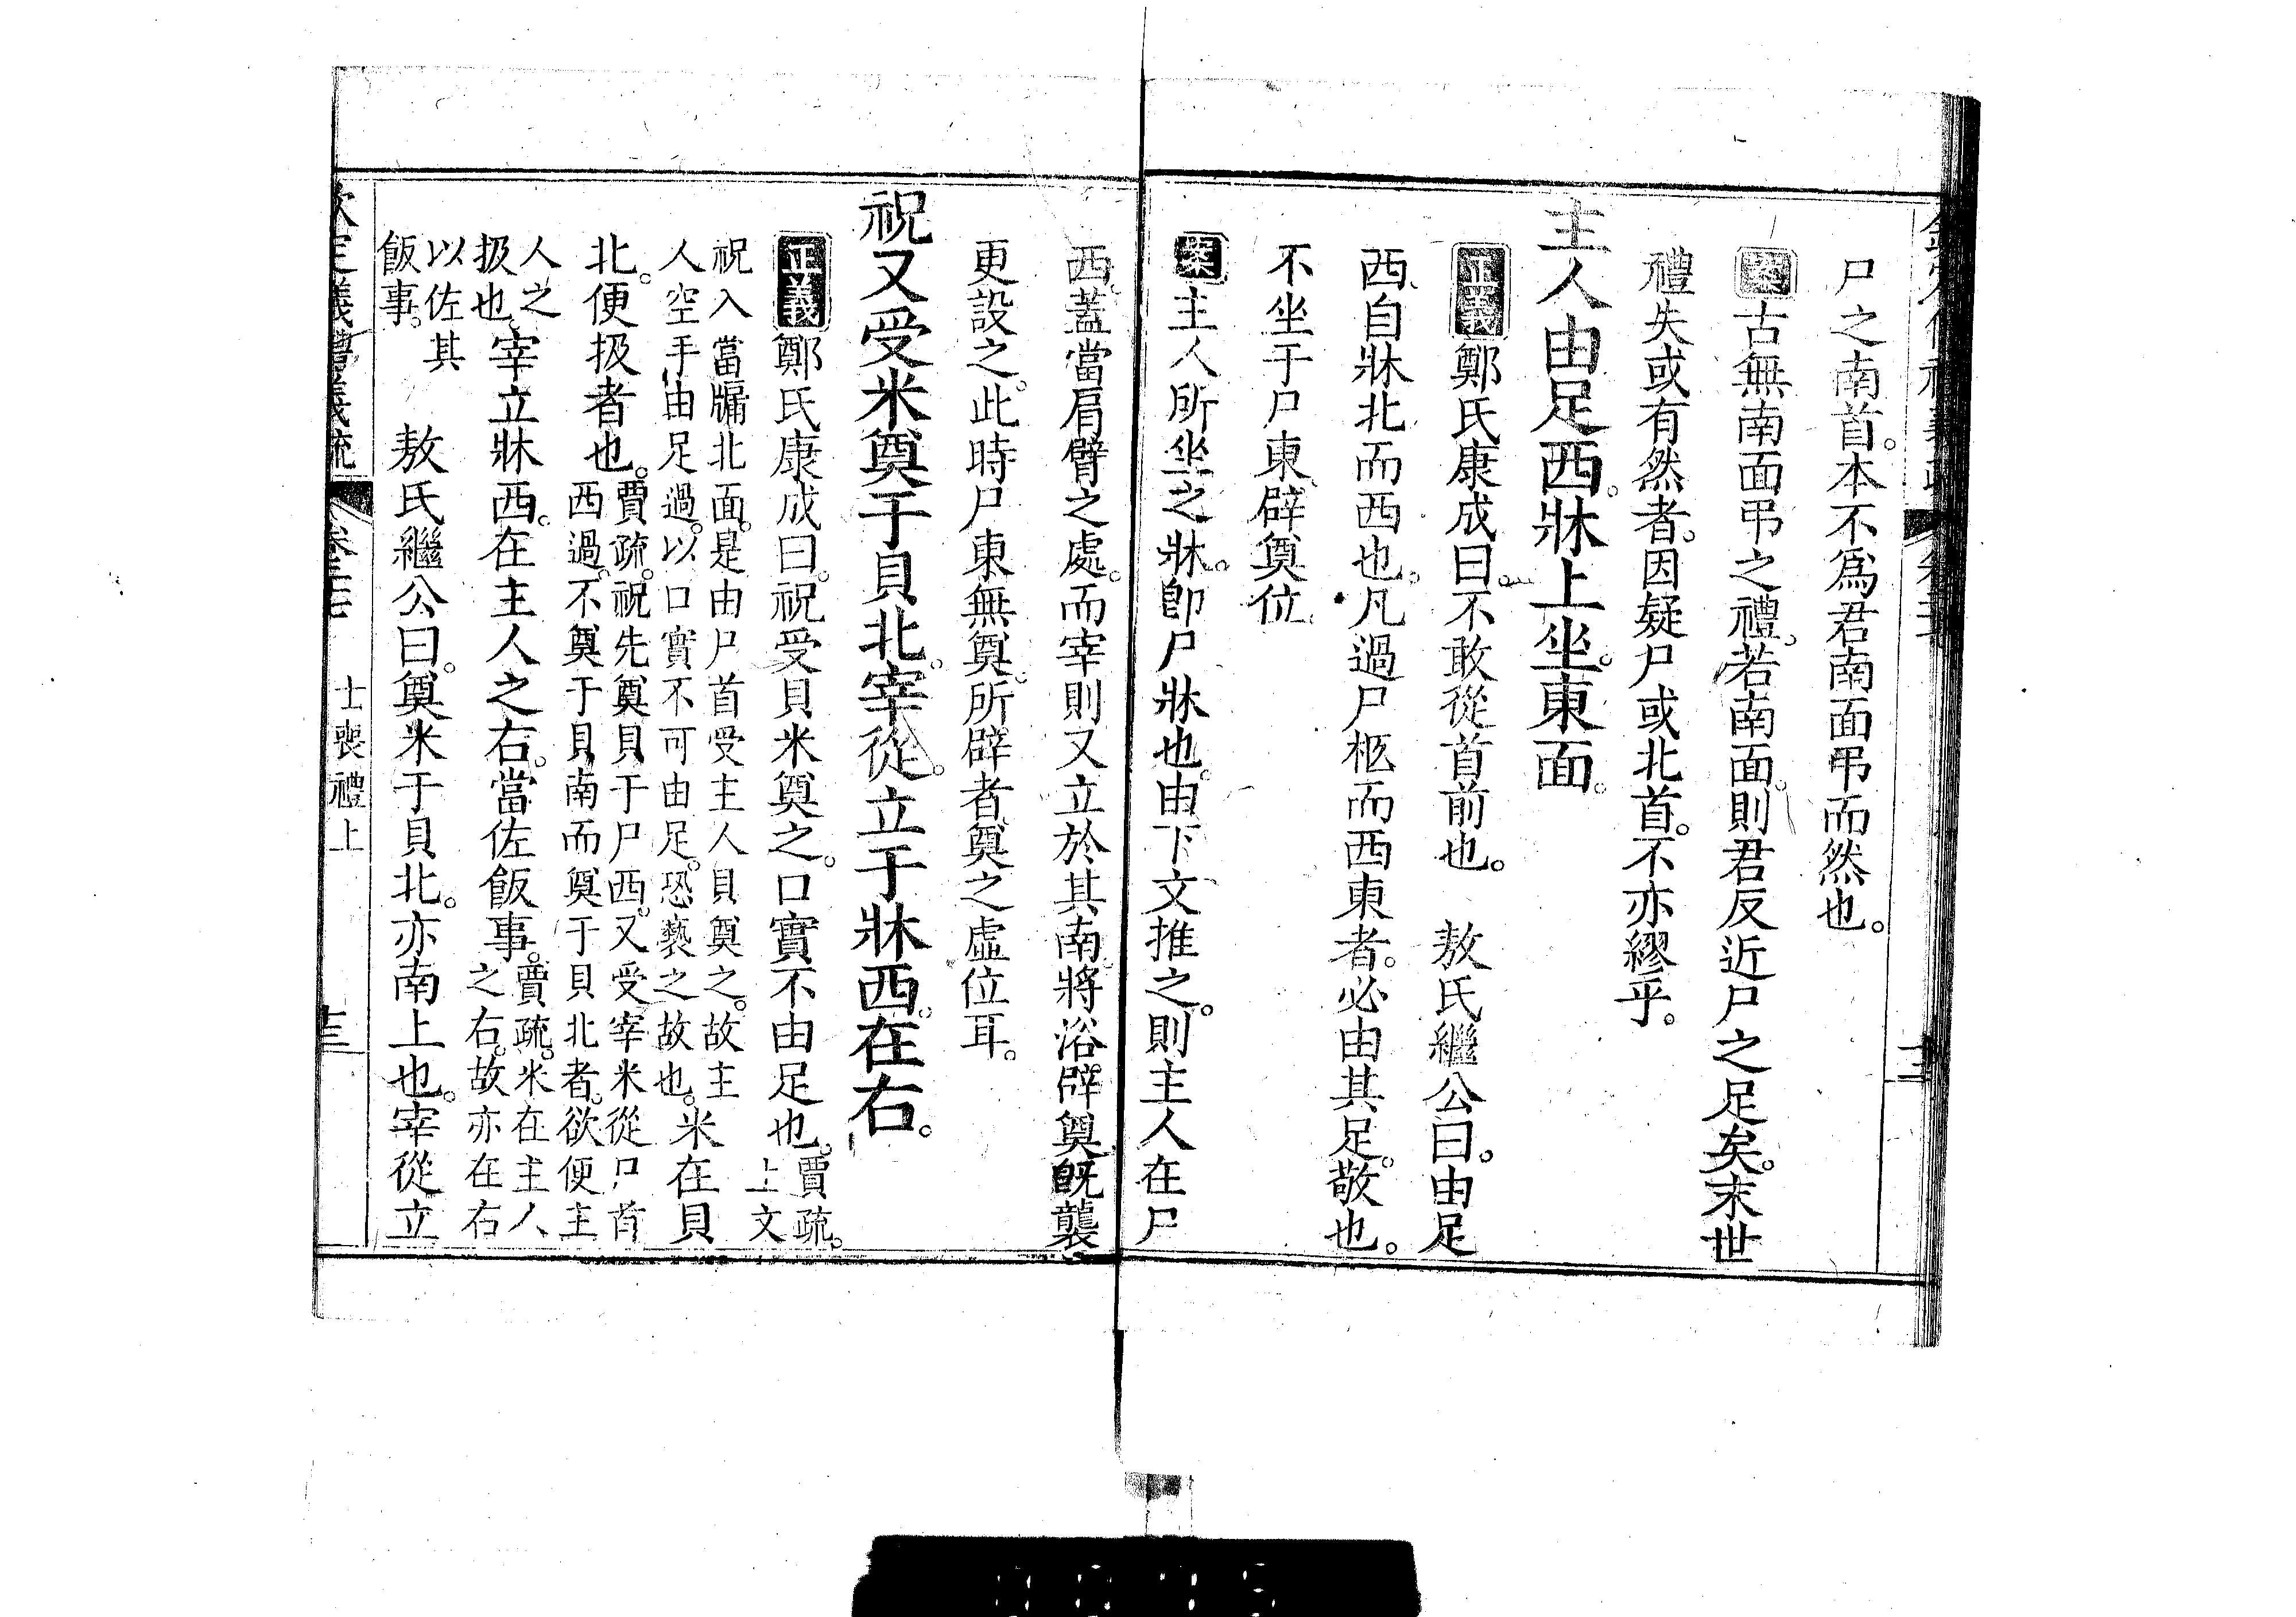 尸之南首。本不爲君南面弔而然也。
案古無南面弔之禮。若南面。則君反近尸之足矣。末世
禮失或有然者。因疑尸或北首。不亦繆乎。
主人由足西。牀上坐。東面。
正義鄭氏康成曰。不敢從首前也。 敖氏繼公曰。由足
西。自牀北而西也。凡過尸柩而西東者。必由其足。敬也。
不坐于尸東。辟奠位
案主人所坐之牀。卽尸牀也。由下文推之。則主人在尸
西。蓋當肩臂之處。而宰則又立於其南。將浴辟奠。旣襲
更設之。此時尸東無奠。所辟者。奠之虛位耳。
祝又受米奠于貝北。宰從立于牀西。在右。
正義鄭氏康成曰。祝受貝米奠之。口實不由足也。賈疏。上文
祝入當牖北面。是由尸首受主人貝奠之。故主
人空手由足過。以口實不可由足。恐褻之故也。米在貝
北。便扱者也。賈疏。祝先奠貝于尸西。又受宰米從尸首
西過。不奠于貝南而奠于貝北者。欲便主
人之
扱也。宰立牀西。在主人之右。當佐飯事。賈疏。米在主人
之右。故亦在右
以佐其
飯事。 敖氏繼公曰。奠米于貝北。亦南上也。宰從立
欽定儀禮義疏 卷二十七 士喪禮上 十三